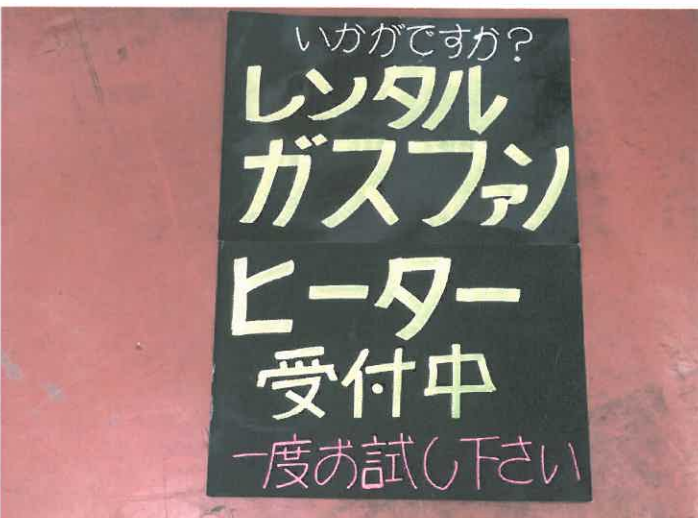 いかがですか?
レンタル
ガスファン
ヒーター
受付中
一度お試し下さい